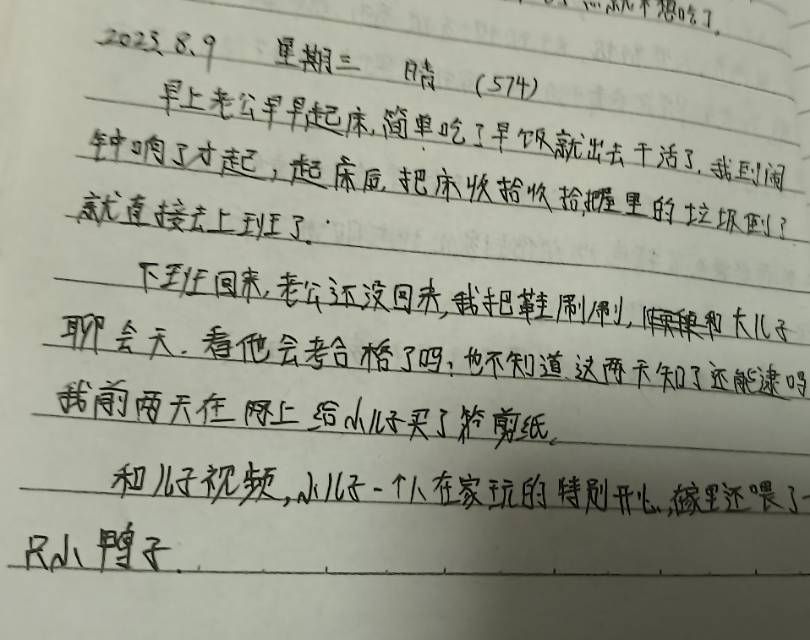 就不想吃了.
2023.8.9 星期三 晴 (574)
早上老公早早起床,简单吃了早饭就出去干活了.我到闹
钟响了才起,起床后,把床收拾收拾,把屋里的垃圾倒了
就直接去上班了.
下班回来,老公还没回来,我把鞋刷刷,和大儿子
聊会天.看他会考合格了吗,也不知道这两天知了还能逮吗
我前两天在网上给小儿子买了箱剪纸。
和儿子视频,小儿子一个人在家玩的特别开心,在家里还喂了一
只小鸭子.